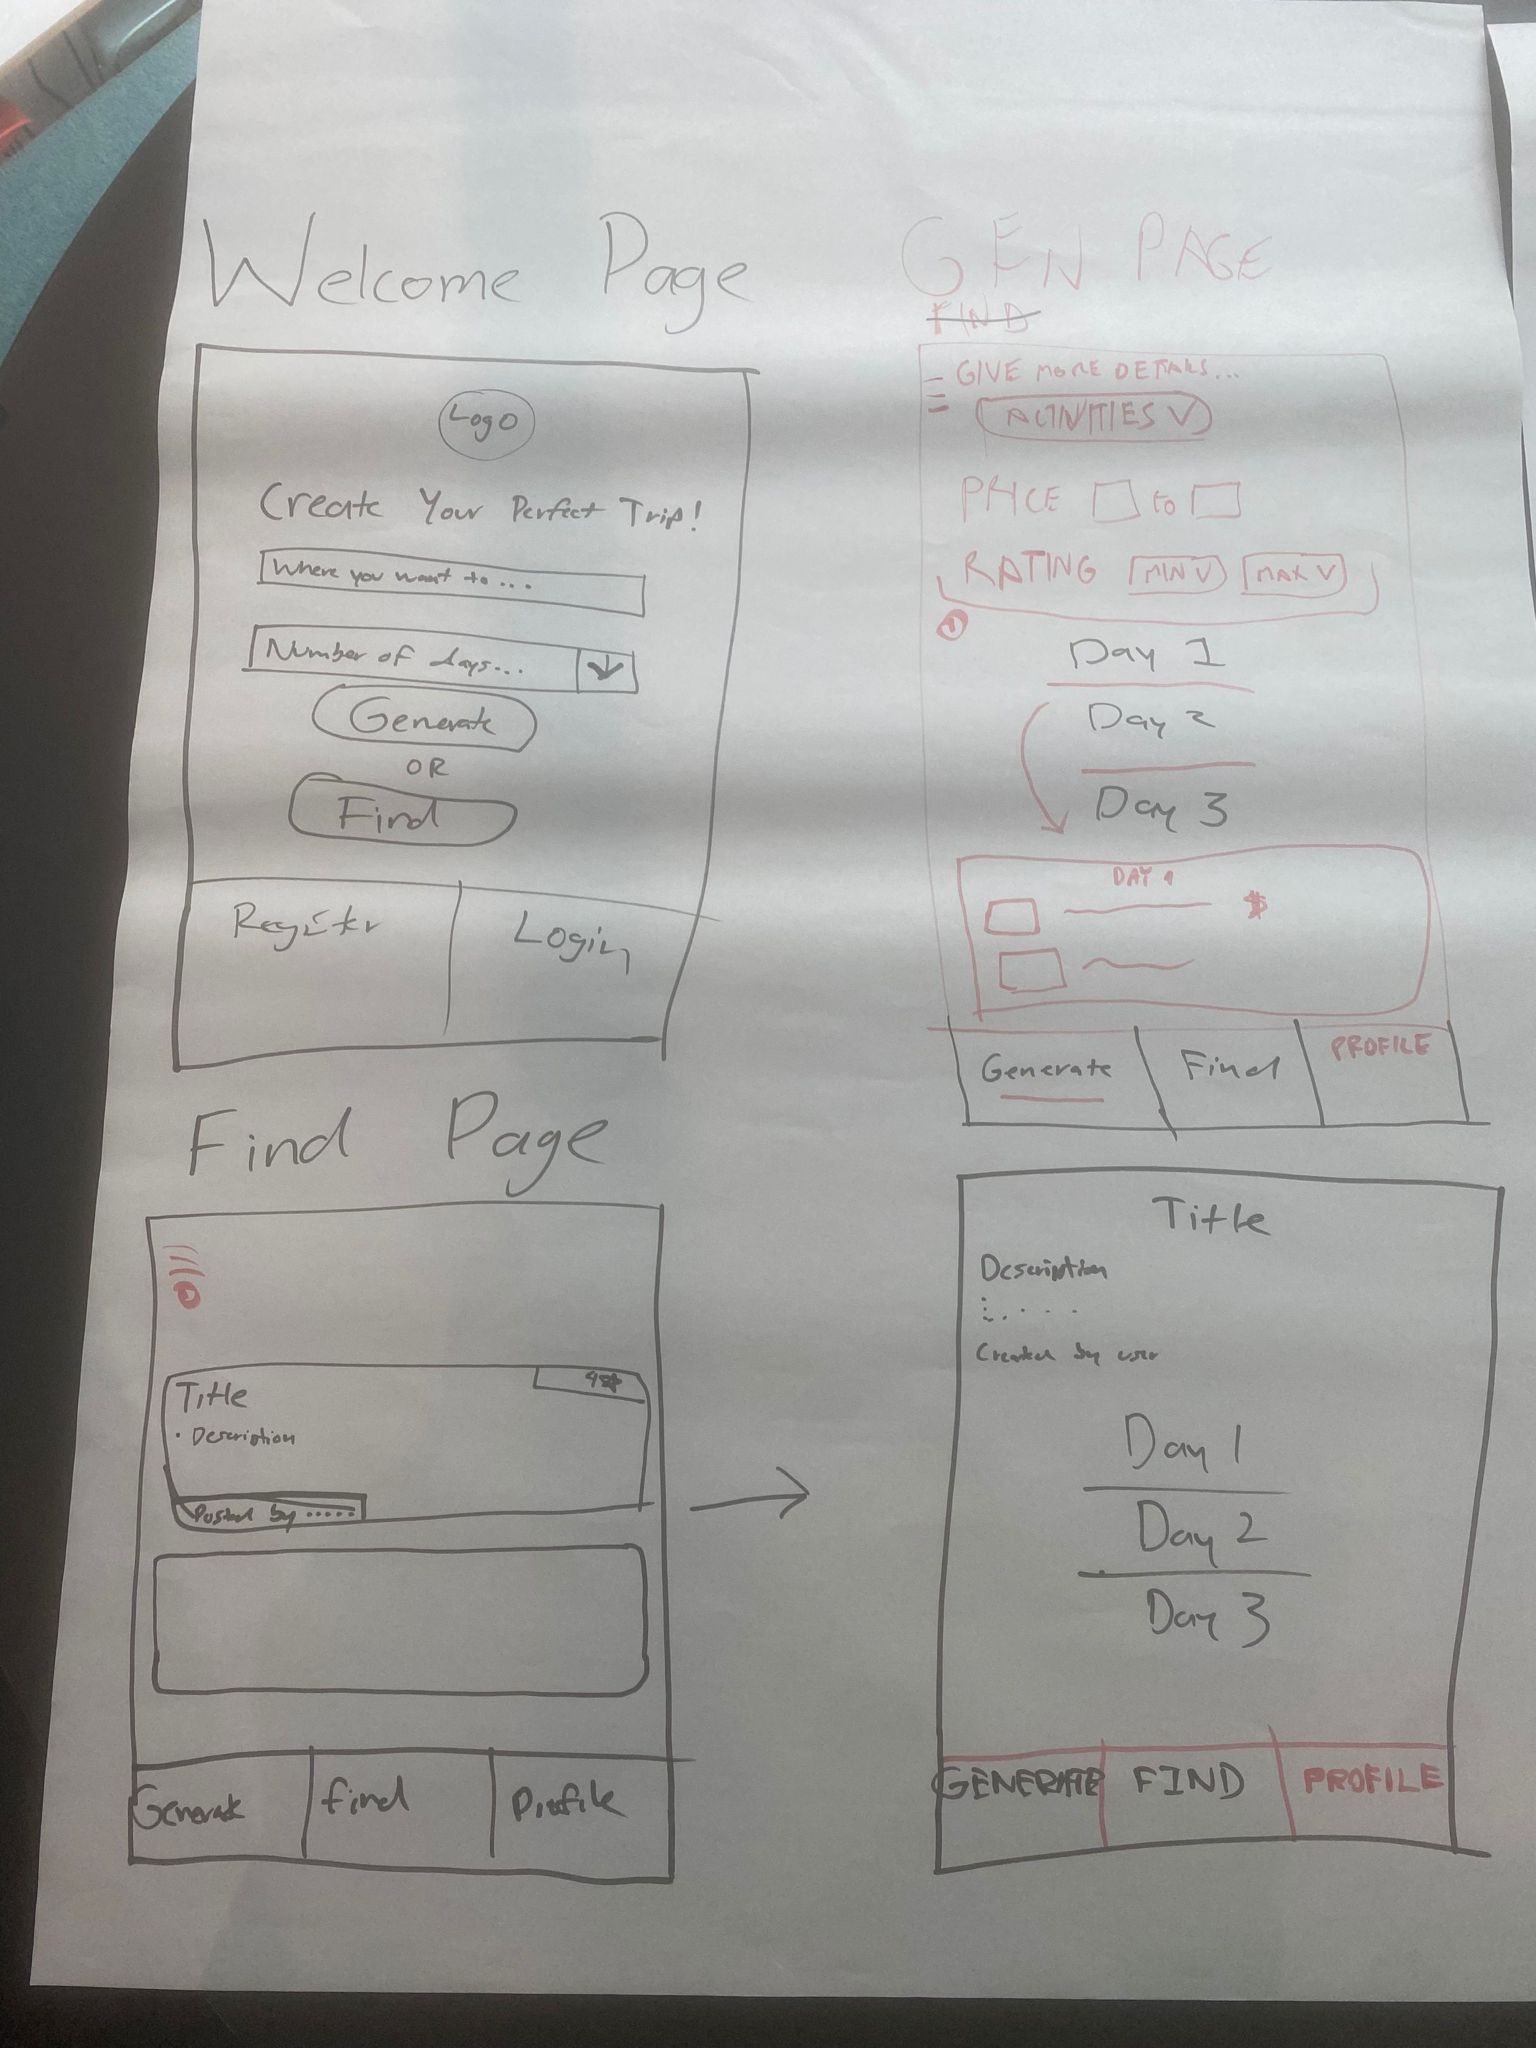 Welcome Page
Logo
Create Your Perfect Trip!
Where you want to...
Number of days...
Generate
OR
Find
Register
Login
GEN PAGE
FIND
GIVE MORE DETAILS...
ACTIVITIES V
PRICE to
RATING MIN V MAX V
Day 1
Day 2
Day 3
DAY 1
$
Generate
Find
PROFILE
Find Page
Title
• Description
Posted by .....
Generate
find
Profile
Title
Description
Created by user
Day 1
Day 2
Day 3
GENERATE
FIND
PROFILE